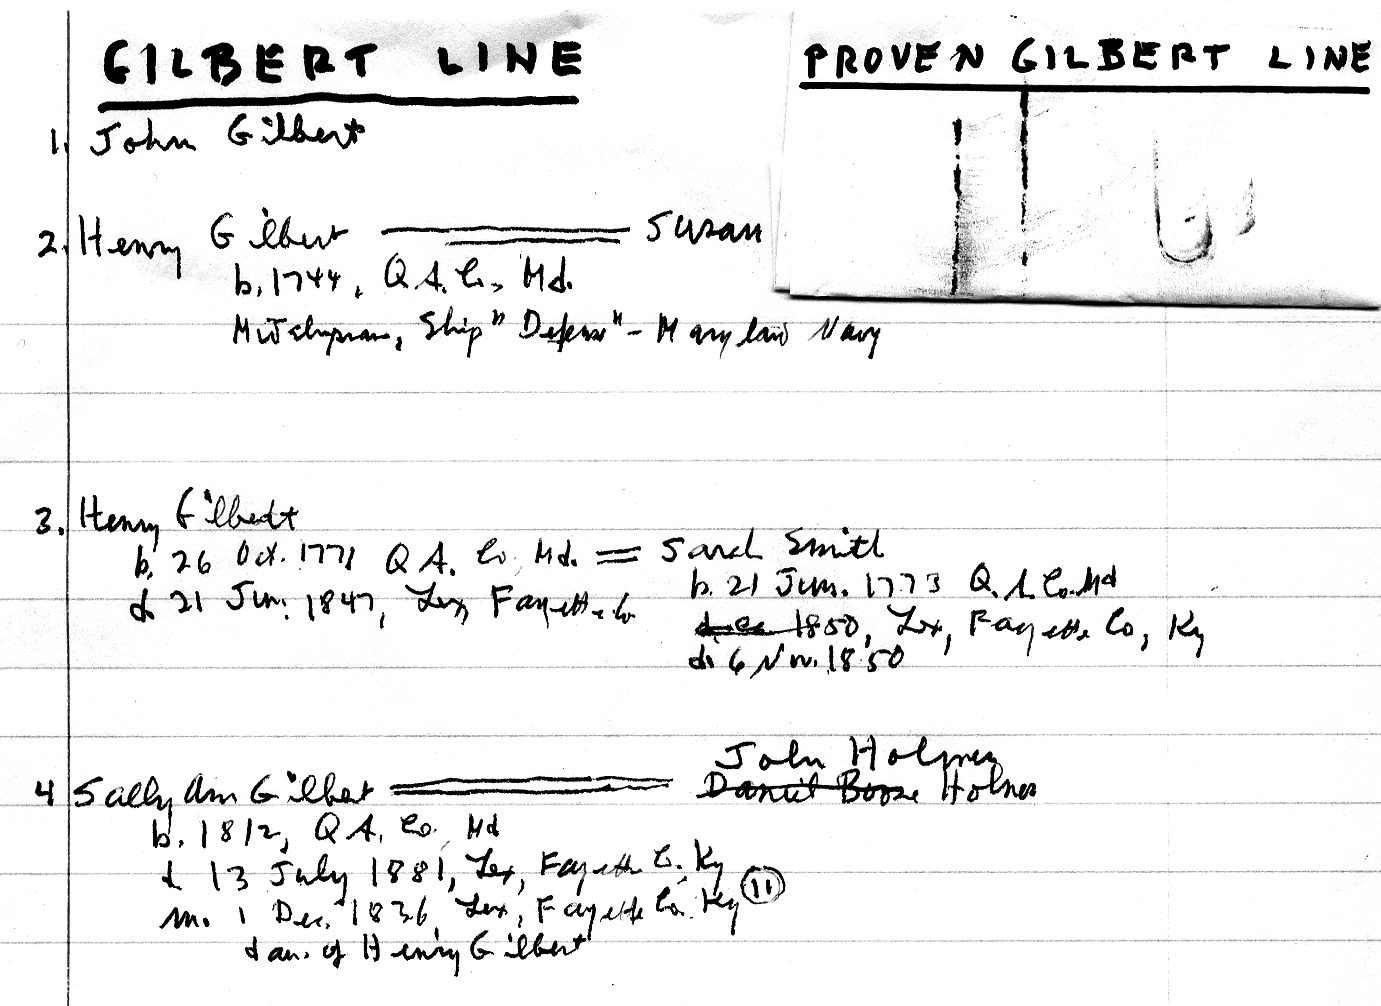 GILBERT LINE
PROVEN GILBERT LINE
1. John Gilbert
2. Henry Gilbert Susan
b. 1744, Q A. Co, Md.
Ship "Defense" - Maryland Navy
3. Henry Gilbert
b. 26 Oct. 1771 Q A. Co, Md. = Sarah Smith
d 21 Jun. 1847, Lex, Fayette Co
b. 21 Jun. 1773 Q. A. Co. Md
d. ca 1850, Lex, Fayette Co, Ky
d. 6 Nov. 1850
John Holmes
4 Sally Ann Gilbert Daniel Boone Holmes
b. 1812, Q A. Co. Md
d 13 July 1881, Lex, Fayette Co. Ky
m. 1 Dec. 1836, Lex, Fayette Co. Ky 11
dau. of Henry Gilbert